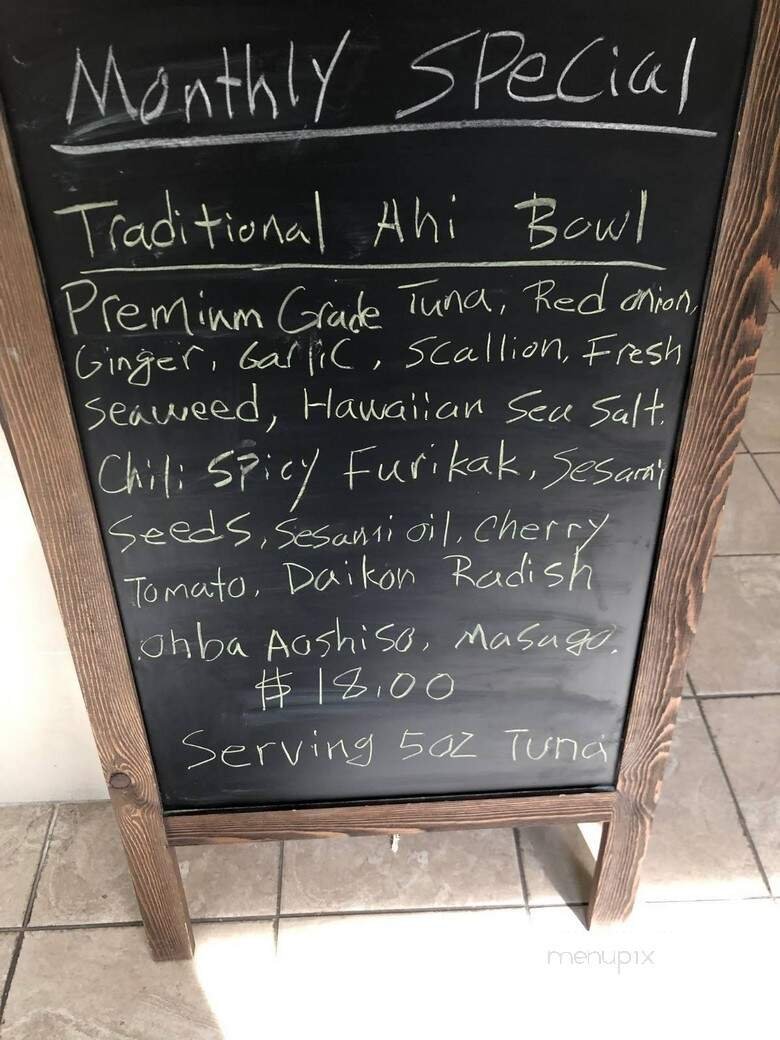 Monthly Special
Traditional Ahi Bowl
Premium Grade Tuna, Red onion,
Ginger, Garlic, Scallion, Fresh
Seaweed, Hawaiian Sea Salt.
Chili Spicy Furikak, Sesami
Seeds, Sesami oil, Cherry
Tomato, Daikon Radish
ohba Aoshiso, Masago.
$18.00
Serving 5oz Tuna
menupix